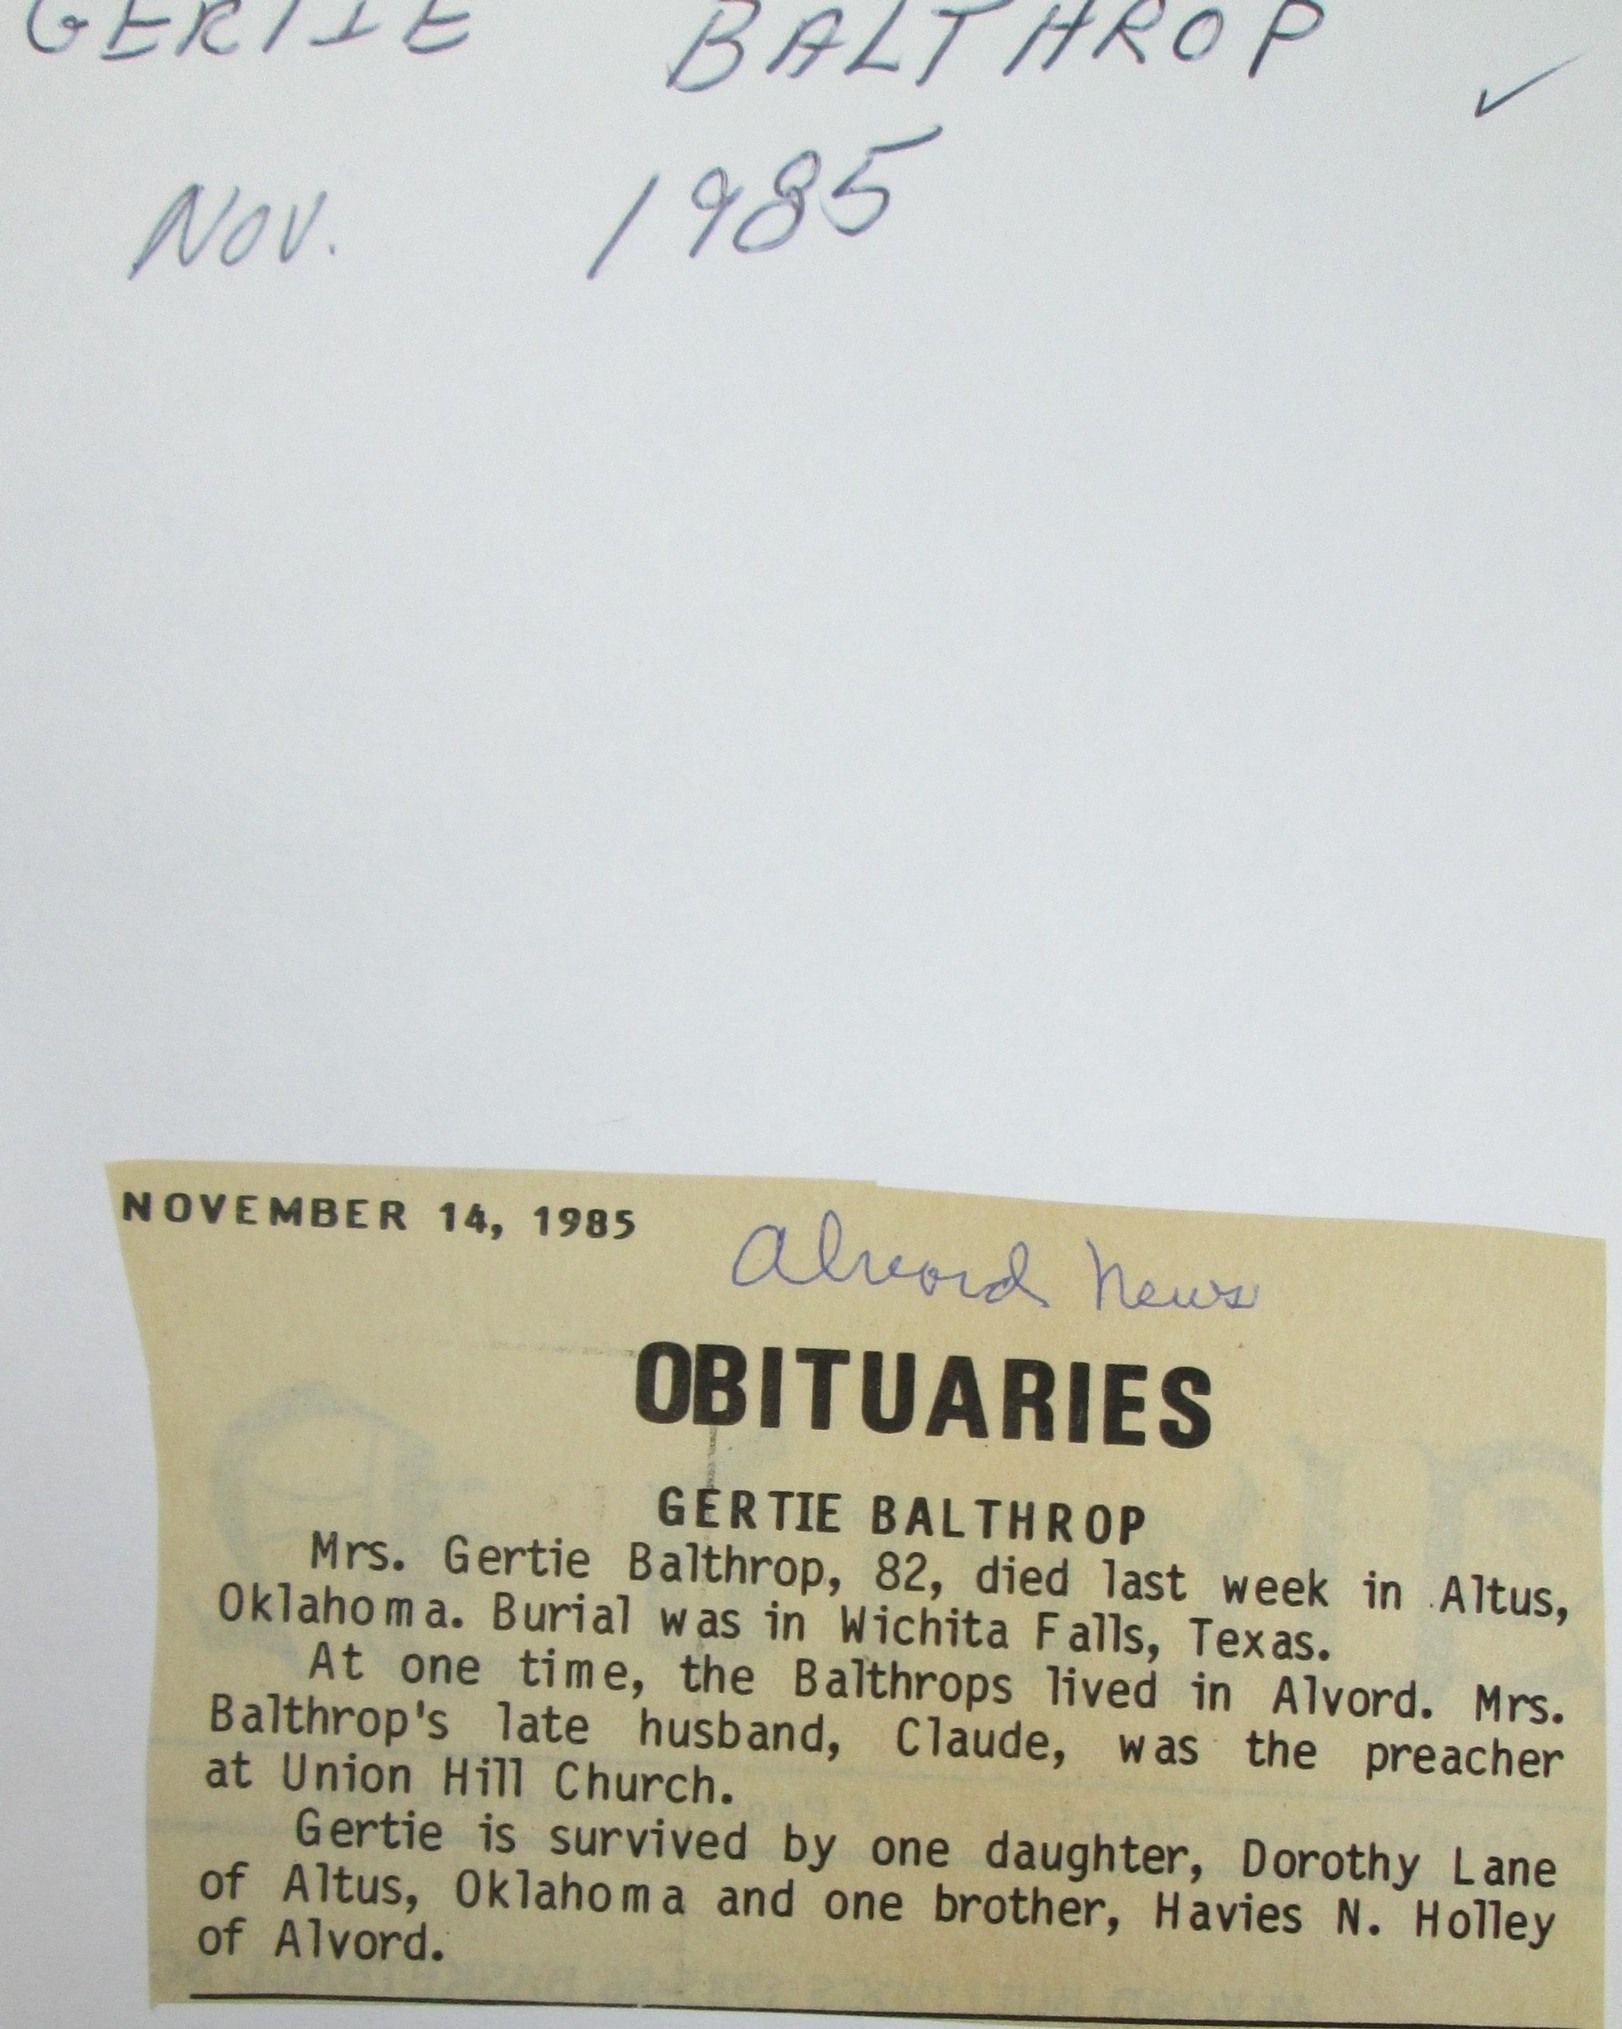 GERTIE BALTHROP ✓
NOV. 1985
NOVEMBER 14, 1985
Alvord News
OBITUARIES
GERTIE BALTHROP
Mrs. Gertie Balthrop, 82, died last week in Altus,
Oklahoma. Burial was in Wichita Falls, Texas.
At one time, the Balthrops lived in Alvord. Mrs.
Balthrop's late husband, Claude, was the preacher
at Union Hill Church.
Gertie is survived by one daughter, Dorothy Lane
of Altus, Oklahoma and one brother, Havies N. Holley
of Alvord.